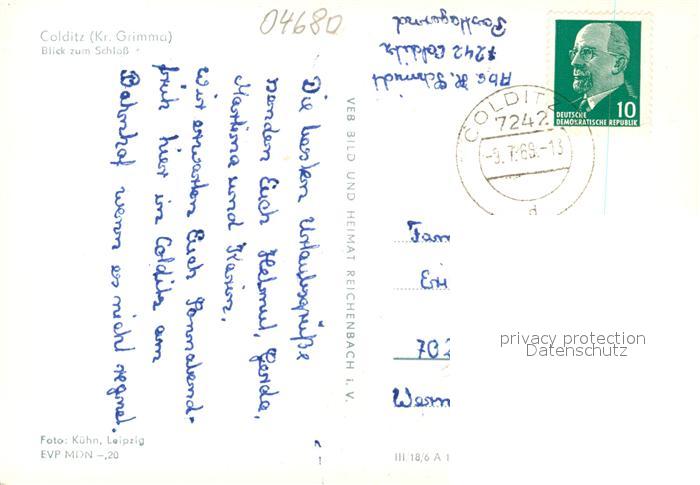 Colditz (Kr. Grimma)
Blick zum Schloß
04680
Die besten Urlaubsgrüße
senden Euch Helmut, Gerda,
Martina und Karin.
Wir erwarten Euch Sonnabend-
früh hier in Colditz am
Bahnhof wenn es nicht regnet.
Foto: Kühn, Leipzig
EVP MDN –,20
VEB BILD UND HEIMAT REICHENBACH i. V.
III/18/6 A 1
Abs. H. Schmidt
7242 Colditz
Postlagernd
DEUTSCHE
DEMOKRATISCHE REPUBLIK
10
COLDITZ
7242
-9.7.69.-13
d
Fam
702
privacy protection
Datenschutz